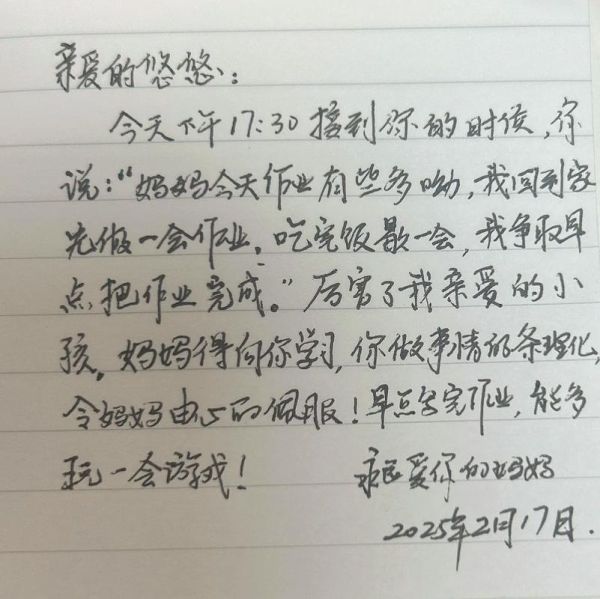 亲爱的悠悠：
今天下午17:30接到你的时候，你
说："妈妈今天作业有些多呦，我回到家
先做一会作业，吃完饭歇一会，我争取早
点把作业完成。"厉害了我亲爱的小
孩，妈妈得向你学习，你做事情的条理化，
令妈妈由心的佩服！早点写完作业，能多
玩一会游戏！
永远爱你的妈妈
2025年2月17日.